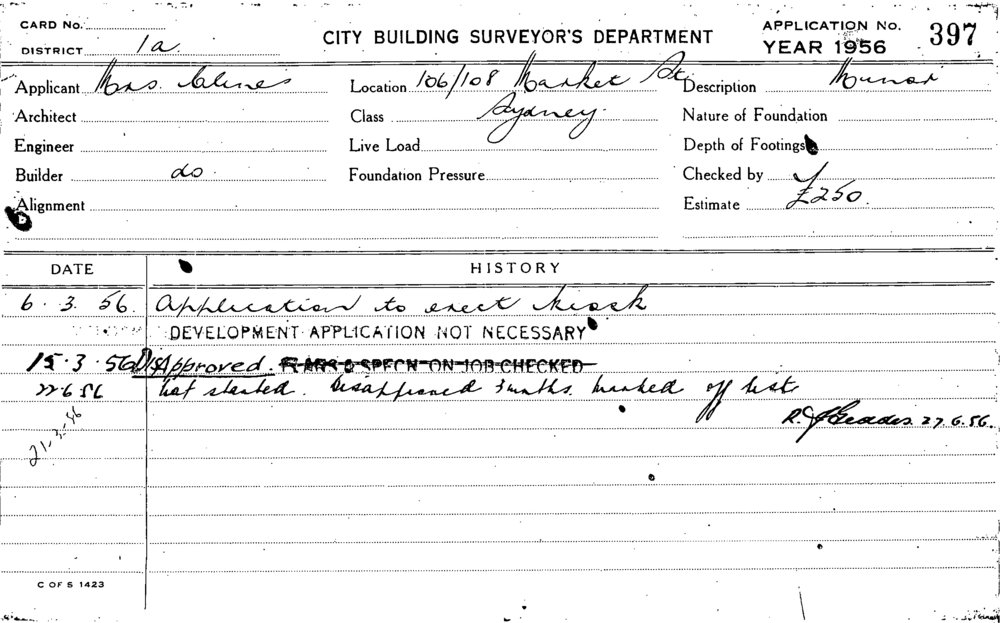 CARD No.
DISTRICT 1a
CITY BUILDING SURVEYOR'S DEPARTMENT
APPLICATION No. 397
YEAR 1956
Applicant Mrs. Clines
Location 106/108 Market St.
Description Minor
Architect
Class Sydney.
Nature of Foundation
Engineer
Live Load
Depth of Footings
Builder do.
Foundation Pressure
Checked by
Alignment
Estimate £250.
DATE HISTORY
6. 3. 56. Application to erect kiosk
DEVELOPMENT APPLICATION NOT NECESSARY
15.3.56 Dis Approved. PLANS & SPECN ON JOB CHECKED
22 6 56 Not started. Disapproved 3 months. marked off list
21-3-56
27.6.56.
C OF S 1423